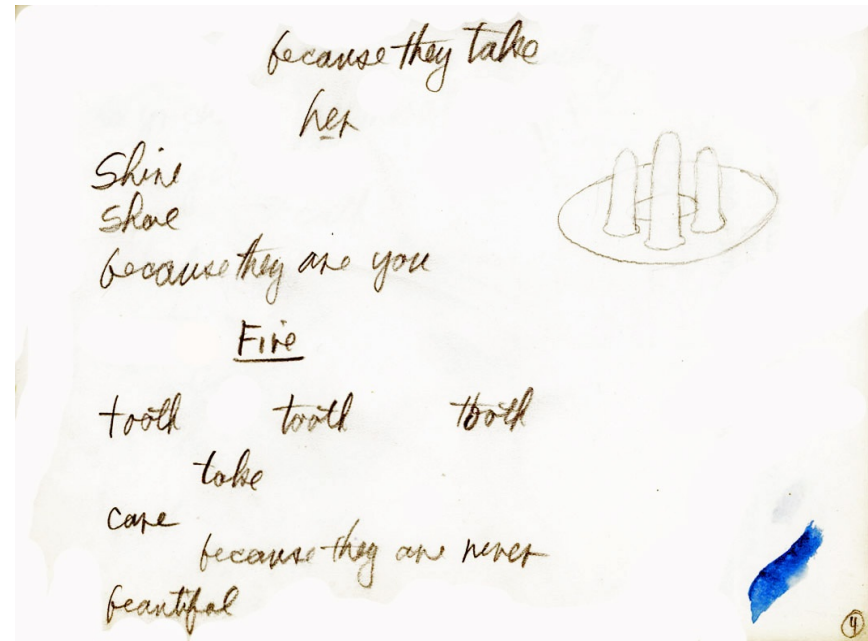 because they take
her
Shine
Shoe
because they are you
Fire
tooth tooth tooth
take
care
because they are never
beautiful
4